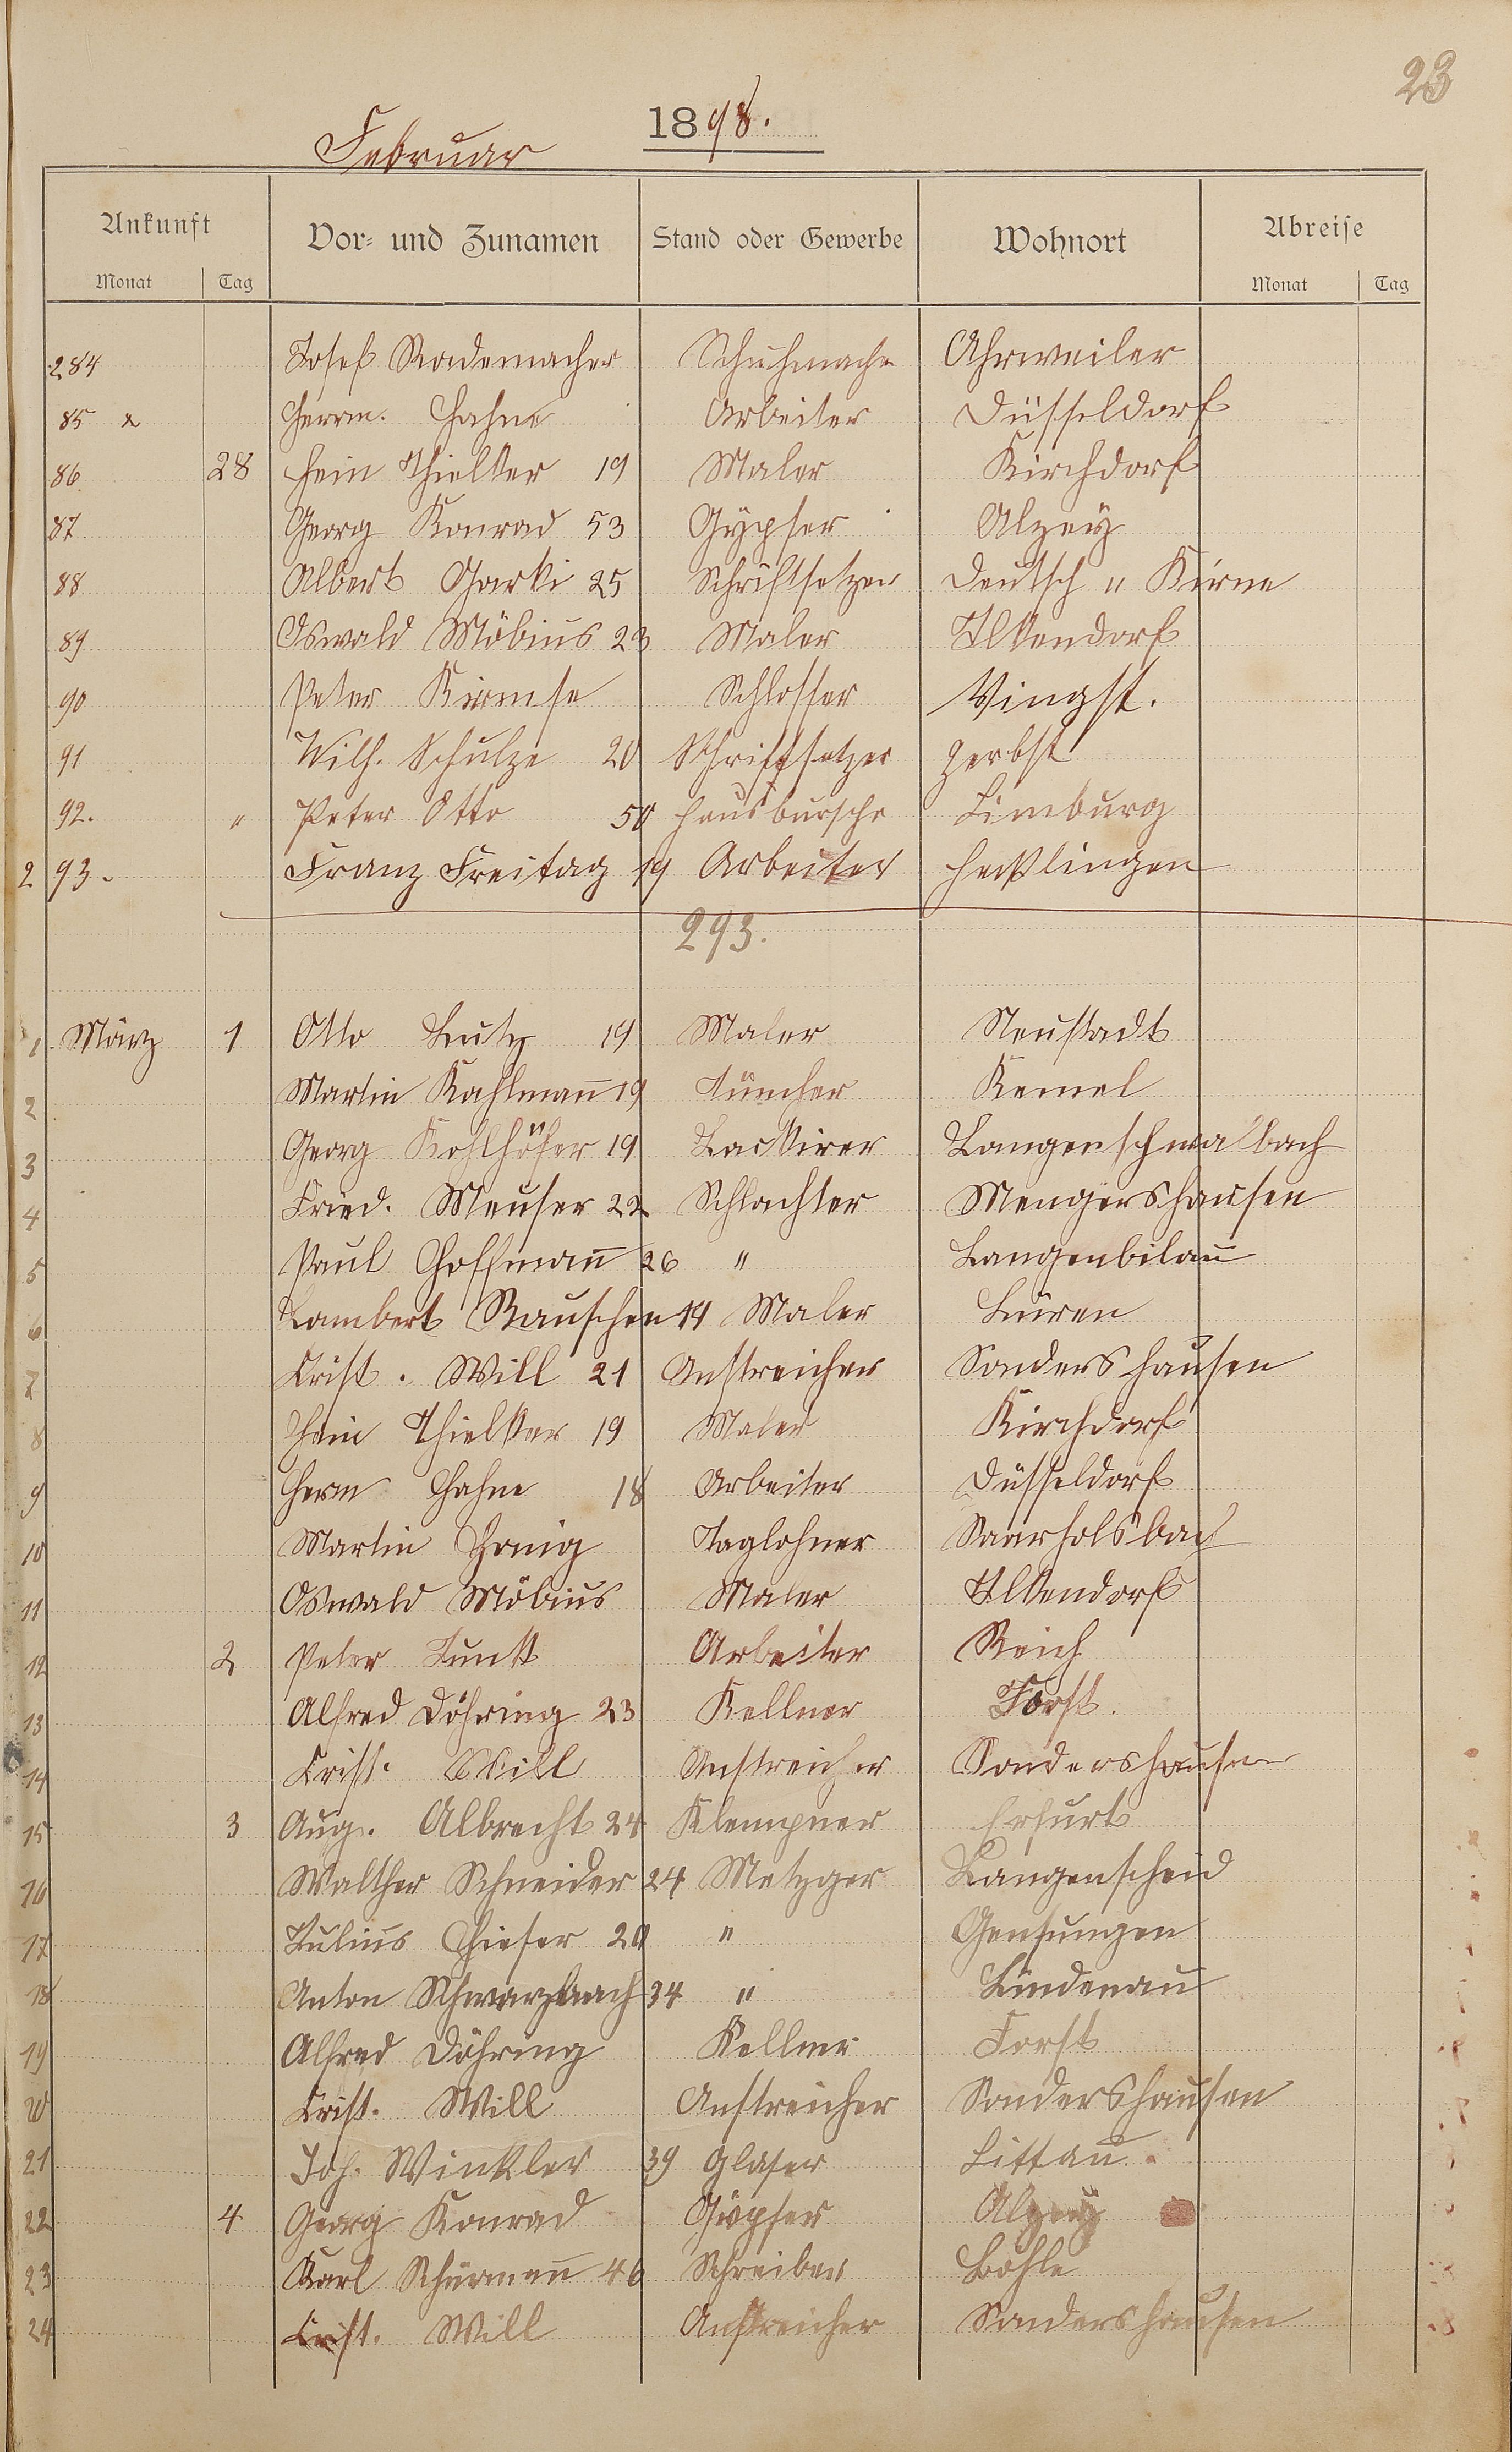 23
Februar 1898.
Ankunft Vor= und Zunamen Stand oder Gewerbe Wohnort Abreise
Monat Tag Monat Tag
284 Josef Rademacher Schuhmacher Ahrweiler
85 x Herrm. Hahne Arbeiter Düsseldorf
86 28 Hein Thielker 19 Maler Kirchdorf
87 Georg Konrad 53 Gypser Alzey
88 Albert 25 Schriftsetzer Deutsch "
89 Oswald Möbius 23 Maler
90 Peter Kirmse Schlosser Vingst.
91 Wilh. Schulze 20 Schriftsetzer Zerbst
92. " Peter Otto 50 Hausbursche Limburg
293. Franz Freitag 19 Arbeiter Heßlingen
293.
1 März 1 Otto Lutz 19 Maler Neustadt
2 Martin Kahlmann 19 Tüncher Kemel
3 Georg Kohlhöfer 19 Lackirer Langenschwalbach
4 Fried. Meuser 22 Schlachter Mengershausen
5 Paul Hoffmann 26 " Langenbilau
6 Lambert Rauschen 19 Maler Düren
7 Crist. Will 21 Anstreicher Sondershausen
8 Hein Thielker 19 Maler Kirchdorf
9 Herm Hahne 18 Arbeiter Düsseldorf
10 Martin Honig Taglohner Saarholsbach
11 Oswald Möbius Maler
12 2 Peter Arbeiter Reich
13 Alfred Döhring 23 Kellner Forst.
14 Crist. Will Anstreicher Sondershausen
15 3 Aug. Albrecht 24 Klempner Erfurt
16 Walther Schneider 24 Metzger Langenscheid
17 Julius Hieser 20 " Gensungen
18 Anton Schwarzbach 34 " Lindenau
19 Alfred Döhring Kellner Forst
20 Crist. Will Anstreicher Sondershausen
21 Joh. Winkler 39 Glaser Littau.
22 4 Georg Konrad Gypser Alzey
23 Karl Schürmann 46 Schreiber Böhle
24 Crist. Will Anstreicher Sondershausen